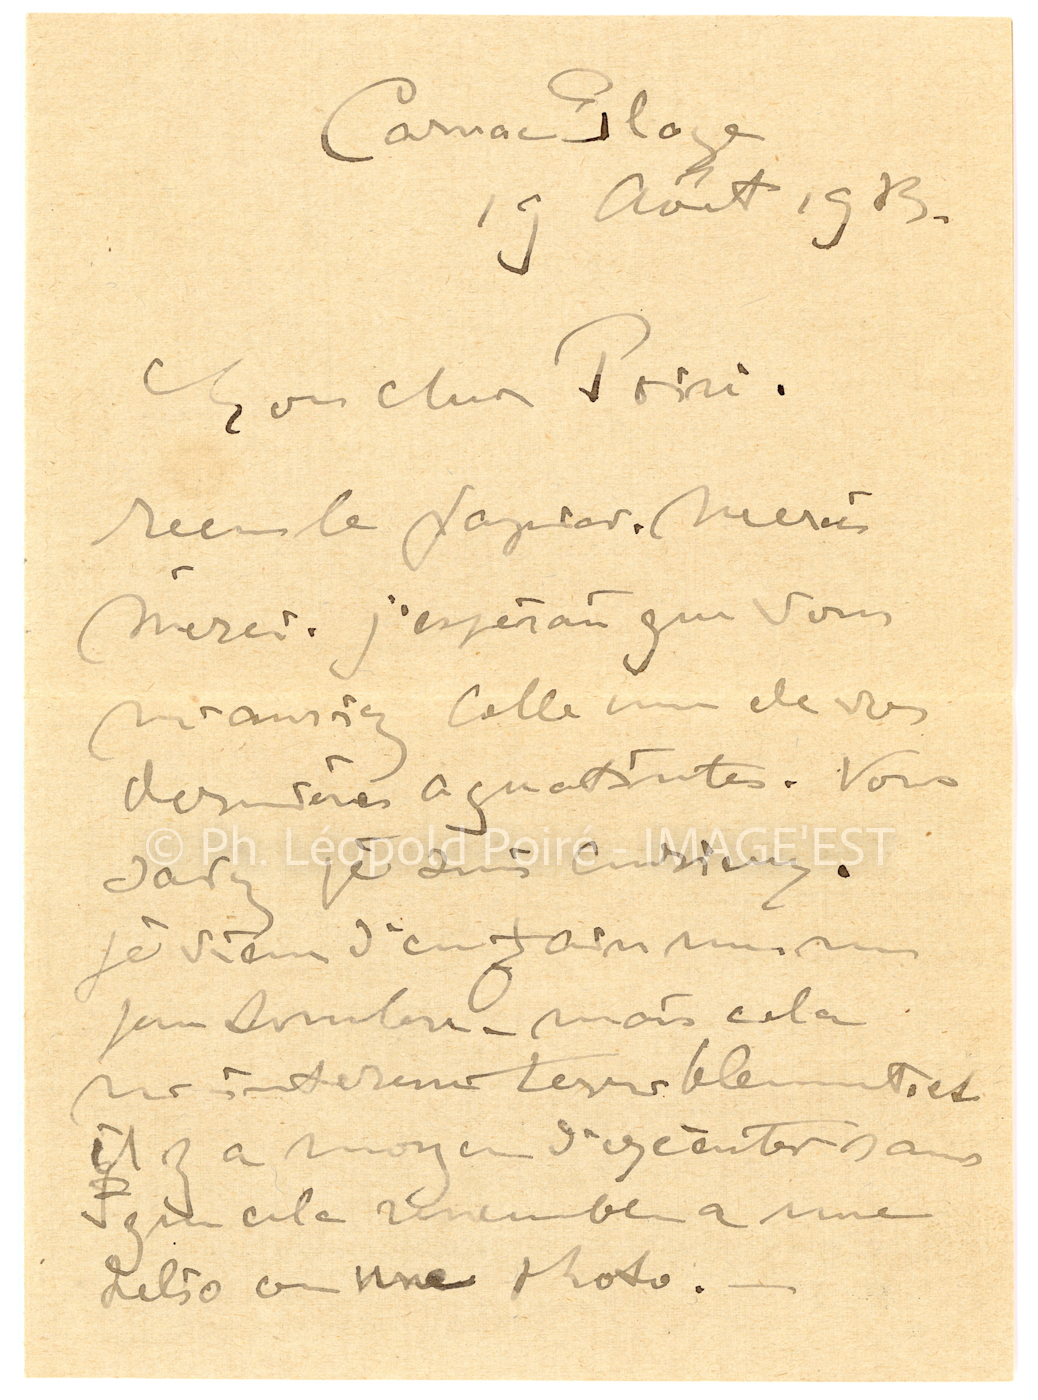 Carnac Plage
19 Août 1913.
Mon cher Poiré.
reçu le papier. Merci
Merci. j'espérais que vous
m'auriez collé une de vos
dernières aquatintes. Vous
savez je suis curieux.
© Ph. Léopold Poiré - IMAGE'EST
je viens d'en faire une un
peu sombre - mais cela
m'intéresse terriblement et
il y a moyen d'exécuter sans
que cela ressemble a une
hélio ou une photo. —